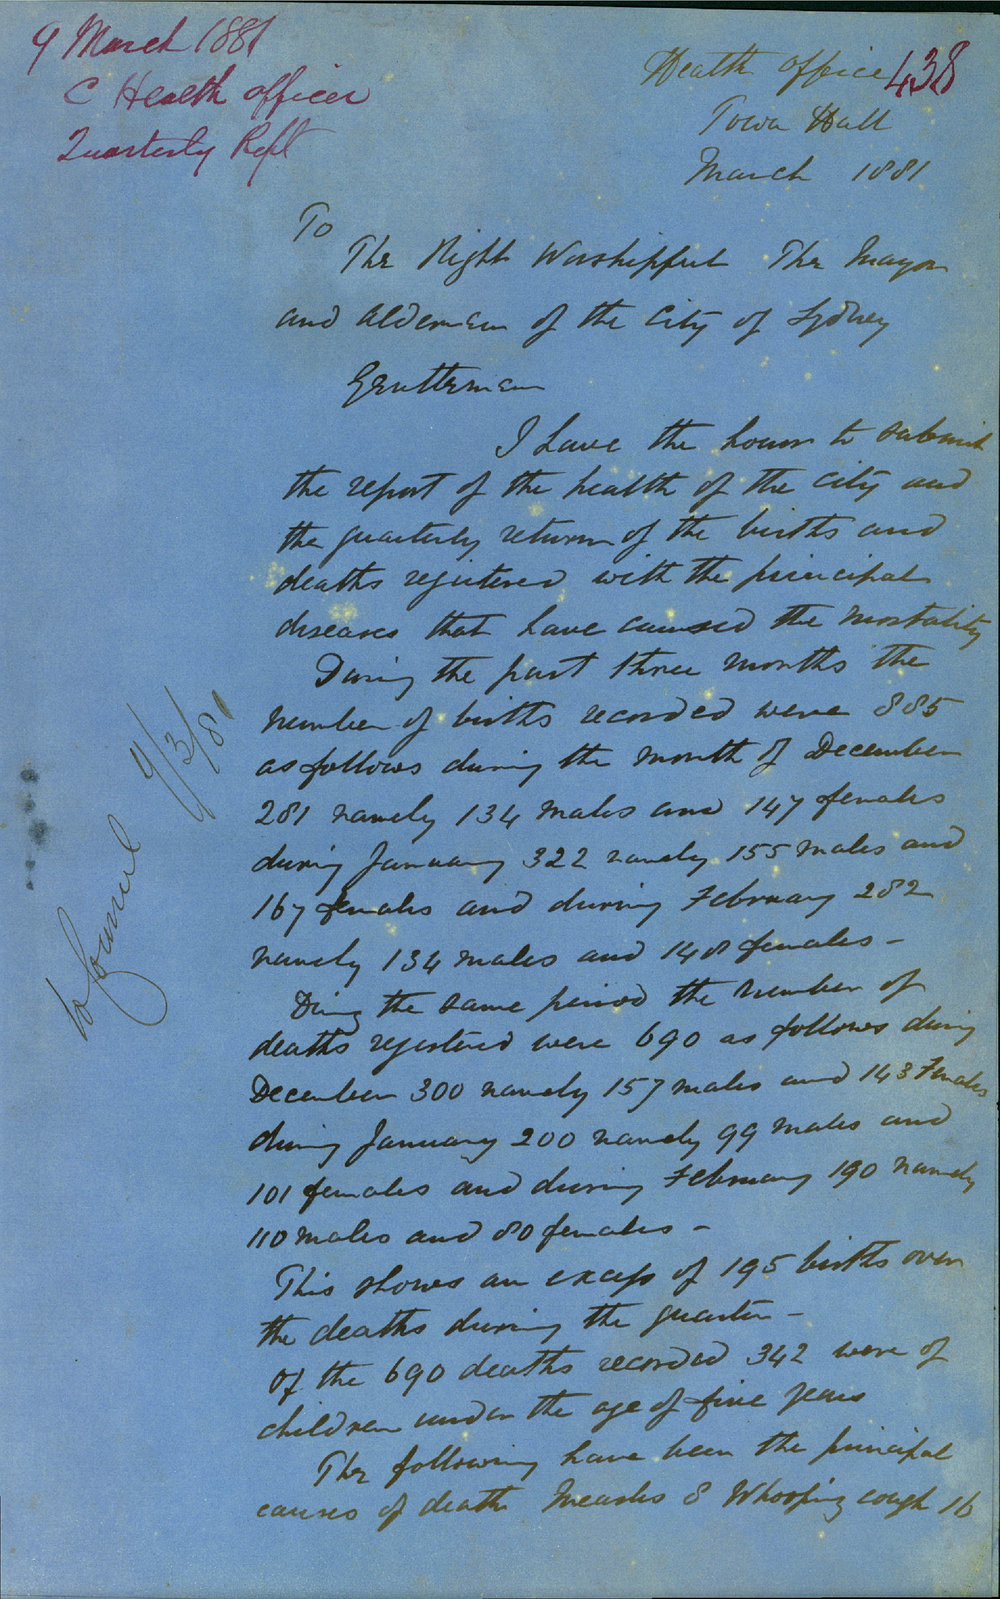 9 March 1881
C Health officer
Quarterly Rept
438
Health office
Town Hall
March 1881
To
The Right Worshipful The Mayor
and Aldermen of the City of Sydney
Gentlemen
I have the honor to submit
the report of the health of the city and
the quarterly return of the births and
deaths registered with the principal
diseases that have caused the mortality
During the past three months the
number of births recorded were 885
as follows during the month of December
281 namely 134 males and 147 females
during January 322 namely 155 males and
167 females and during February 282
namely 134 males and 148 females -
During the same period the number of
deaths registered were 690 as follows during
December 300 namely 157 males and 143 Females
during January 200 namely 99 males and
101 females and during February 190 namely
110 males and 80 females -
This shows an excess of 195 births over
the deaths during the quarter -
Of the 690 deaths recorded 342 were of
children under the age of five years
The following have been the principal
causes of death Measles 8 Whooping cough 16
to Council 9/3/81